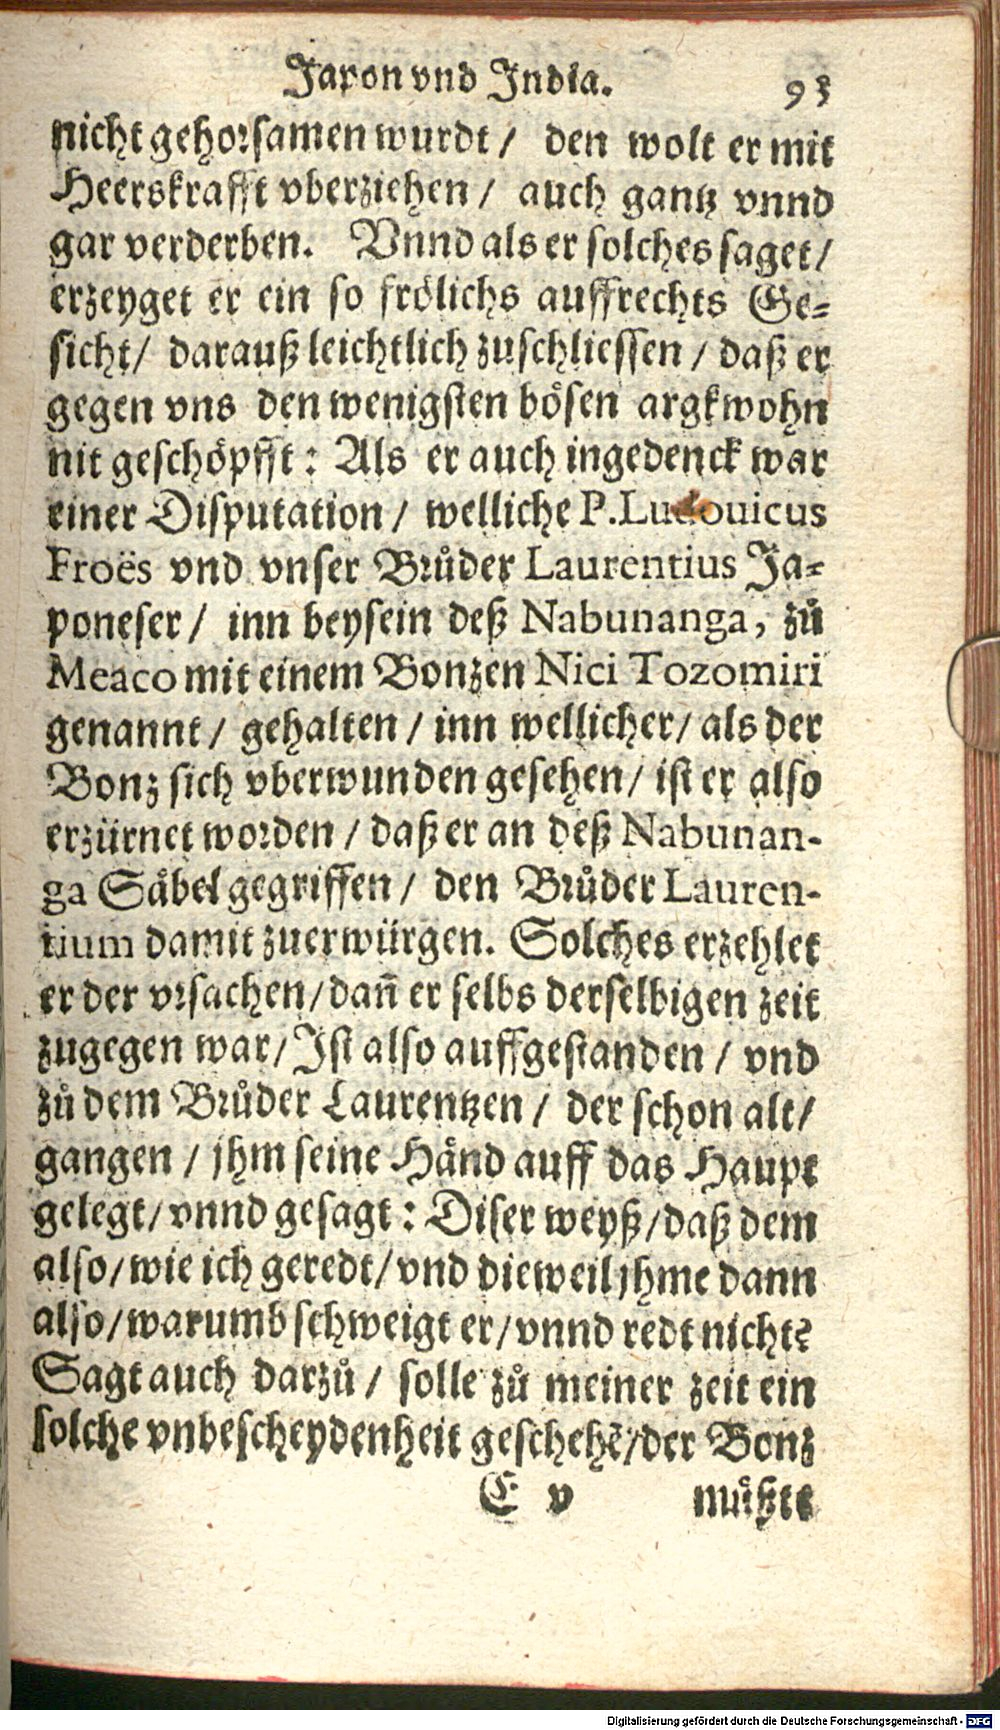 Japon vnd India. 93
nicht gehorsamen wurdt / den wolt er mit
Heerskrafft vberziehen / auch gantz vnnd
gar verderben. Vnnd als er solches saget /
erzeyget er ein so frölichs auffrechts Ge-
sicht / darauß leichtlich zuschliessen / daß er
gegen vns den wenigsten bösen argkwohn
nit geschöpfft : Als er auch ingedenck war
einer Disputation / welliche P. Ludouicus
Froës vnd vnser Brůder Laurentius Ja-
poneser / inn beysein deß Nabunanga, zů
Meaco mit einem Bonzen Nici Tozomiri
genannt / gehalten / inn wellicher / als der
Bonz sich vberwunden gesehen / ist er also
erzürnet worden / daß er an deß Nabunan-
ga Säbel gegriffen / den Brůder Lauren-
tium damit zuerwürgen. Solches erzehlet
er der vrsachen / dañ er selbs derselbigen zeit
zugegen war / Ist also auffgestanden / vnd
zů dem Brůder Laurentzen / der schon alt /
gangen / jhm seine Händ auff das Haupt
gelegt / vnnd gesagt : Diser weyß / daß dem
also / wie ich geredt / vnd dieweil jhme dann
also / warumb schweigt er / vnnd redt nicht?
Sagt auch darzů / solle zů meiner zeit ein
solche vnbescheydenheit geschehẽ / der Bonz
E v müßte
Digitalisierung gefördert durch die Deutsche Forschungsgemeinschaft - DFG